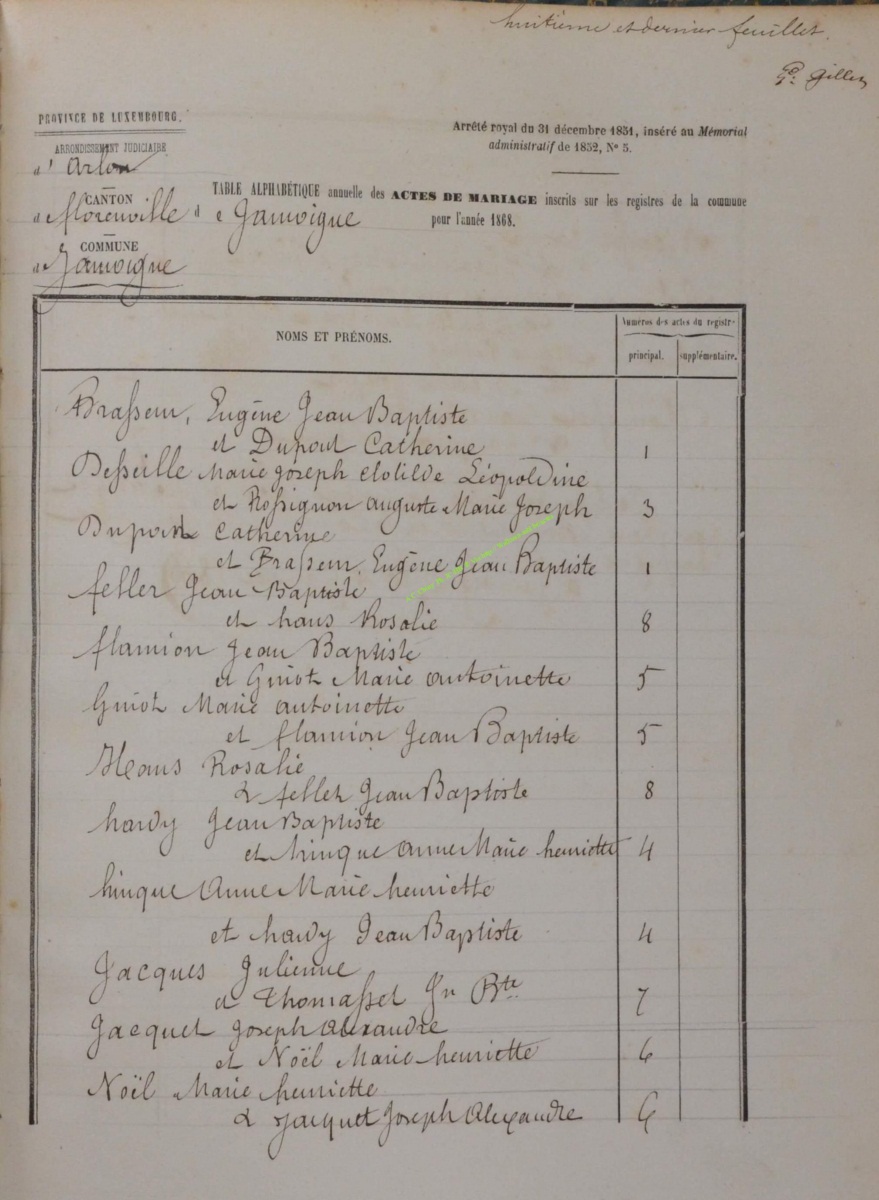 huitième et dernier feuillet.
Gillet
PROVINCE DE LUXEMBOURG.
ARRONDISSEMENT JUDICIAIRE
d'Arlon
CANTON
de florenville
COMMUNE
de Jamoigne
Arrêté royal du 31 décembre 1851, inséré au Mémorial
administratif de 1852, N° 5.
TABLE ALPHABÉTIQUE annuelle des ACTES DE MARIAGE inscrits sur les registres de la commune
de Jamoigne pour l'année 1868.
NOMS ET PRÉNOMS.
Numéros des actes du registre
principal.
supplémentaire.
Brasseur, Eugène Jean Baptiste
et Dupont Catherine 1
Desseille Marie Joseph Clotilde Léopoldine
et Rossignon auguste Marie Joseph 3
Dupont Catherine
et Brasseur, Eugène Jean Baptiste 1
feller Jean Baptiste
et hans Rosalie 8
flamion Jean Baptiste
et Guiot Marie antoinette 5
Guiot Marie antoinette
et flamion Jean Baptiste 5
Hans Rosalie
& feller Jean Baptiste 8
hardy Jean Baptiste
et hinque anne Marie henriette 4
hinque Anne Marie henriette
et hardy Jean Baptiste 4
Jacques Julienne
et Thomasset Jn Bte 7
Jacquet Joseph alexandre
et Noël Marie henriette 6
Noël Marie henriette
& Jacquet Joseph Alexandre 6